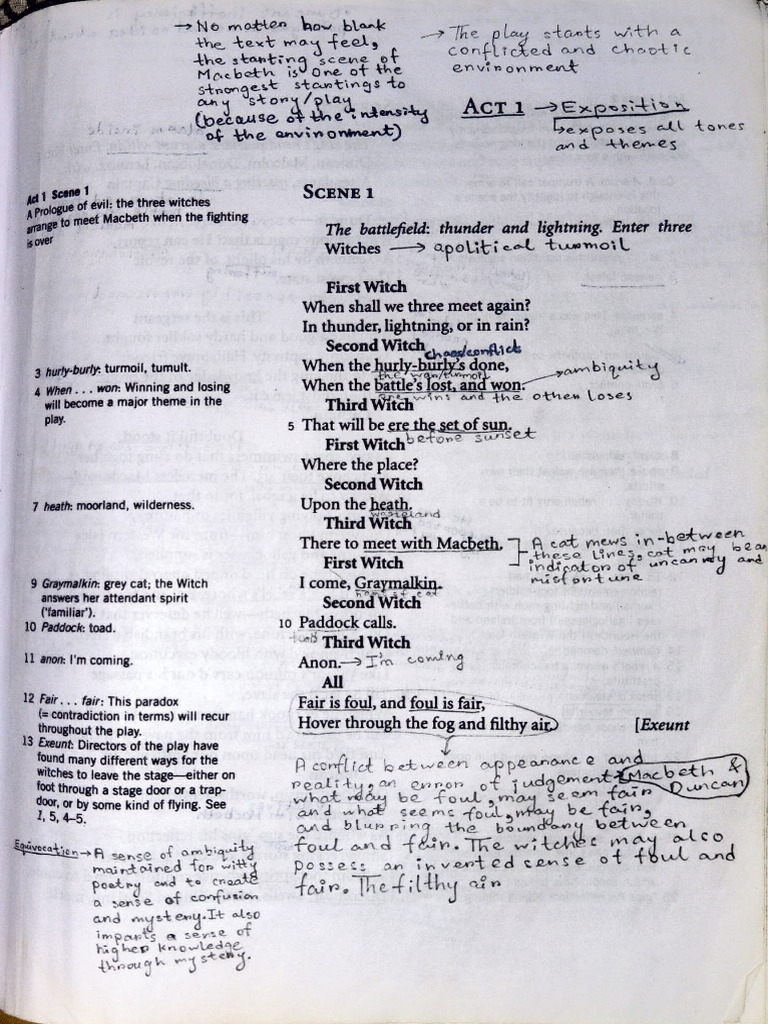 → No matter how blank
the text may feel,
the starting scene of
Macbeth is one of the
strongest startings to
any story/play
(because of the intensity
of the environment)
→ The play starts with a
conflicted and chaotic
environment
ACT 1 → Exposition
exposes all tones
and themes
Act 1 Scene 1
A Prologue of evil: the three witches
arrange to meet Macbeth when the fighting
is over
SCENE 1
The battlefield: thunder and lightning. Enter three
Witches → apolitical turmoil
First Witch
When shall we three meet again?
In thunder, lightning, or in rain?
Second Witch
chaos/conflict
3 hurly-burly: turmoil, tumult.
When the hurly-burly's done,
the war/turmoil
4 When . . . won: Winning and losing
will become a major theme in the
play.
When the battle's lost, and won. → ambiguity
one wins and the other loses
Third Witch
5 That will be ere the set of sun.
before sunset
First Witch
Where the place?
Second Witch
7 heath: moorland, wilderness.
Upon the heath.
wasteland
Third Witch
There to meet with Macbeth.
A cat mews in-between
these lines, cat may be an
indicator of uncanny and
misfortune
First Witch
9 Graymalkin: grey cat; the Witch
answers her attendant spirit
('familiar').
I come, Graymalkin.
cat
Second Witch
10 Paddock: toad.
10 Paddock calls.
toad
Third Witch
11 anon: I'm coming.
Anon. → I'm coming
All
12 Fair . . . fair: This paradox
(= contradiction in terms) will recur
throughout the play.
Fair is foul, and foul is fair,
Hover through the fog and filthy air.
[Exeunt
13 Exeunt: Directors of the play have
found many different ways for the
witches to leave the stage—either on
foot through a stage door or a trap-
door, or by some kind of flying. See
1, 5, 4–5.
A conflict between appearance and
reality, an error of judgement → Macbeth &
Duncan
what may be foul, may seem fair
and what seems foul, may be fair,
and blurring the boundary between
foul and fair. The witches may also
possess an inverted sense of foul and
fair. The filthy air
Equivocation → A sense of ambiguity
maintained for witty
poetry and to create
a sense of confusion
and mystery. It also
imparts a sense of
higher knowledge
through mystery.